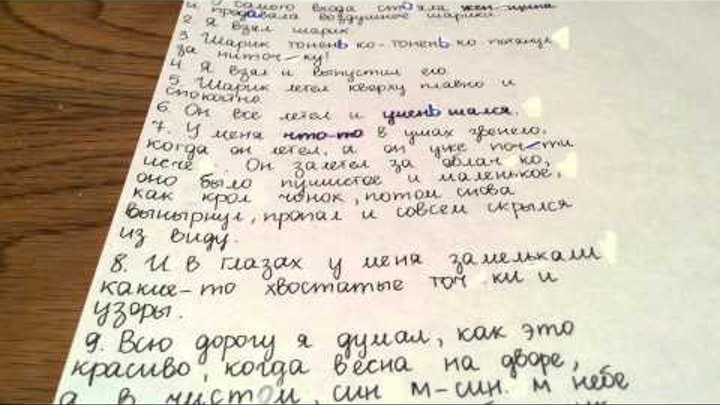 1. У самого входа стояла жен-щина
и продавала воздушные шарики.
2. Я взял шарик.
3. Шарик тонень ко-тонень ко потянул
за ниточ-ку!
4. Я взял и выпустил его.
5. Шарик летел кверху плавно и
спокойно
6. Он все летел и умень шался.
7. У меня что-то в ушах звенело,
когда он летел, а он уже поч-ти
исче . Он залетел за облач ко,
оно было пушистое и маленькое,
как крол чонок, потом снова
вынырнул, пропал и совсем скрылся
из виду.
8. И в глазах у меня замелькали
какие-то хвостатые точ ки и
узоры.
9. Всю дорогу я думал, как это
красиво, когда весна на дворе,
а в чистом, син м-син м небе